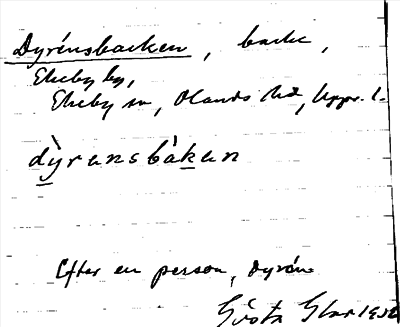 Dyrénsbacken, backe,
Ekeby by,
Ekeby sn, Olands hd, Upps. l.
dỳ̱rənsbàḵən
Efter en person, Dyrén
Gösta